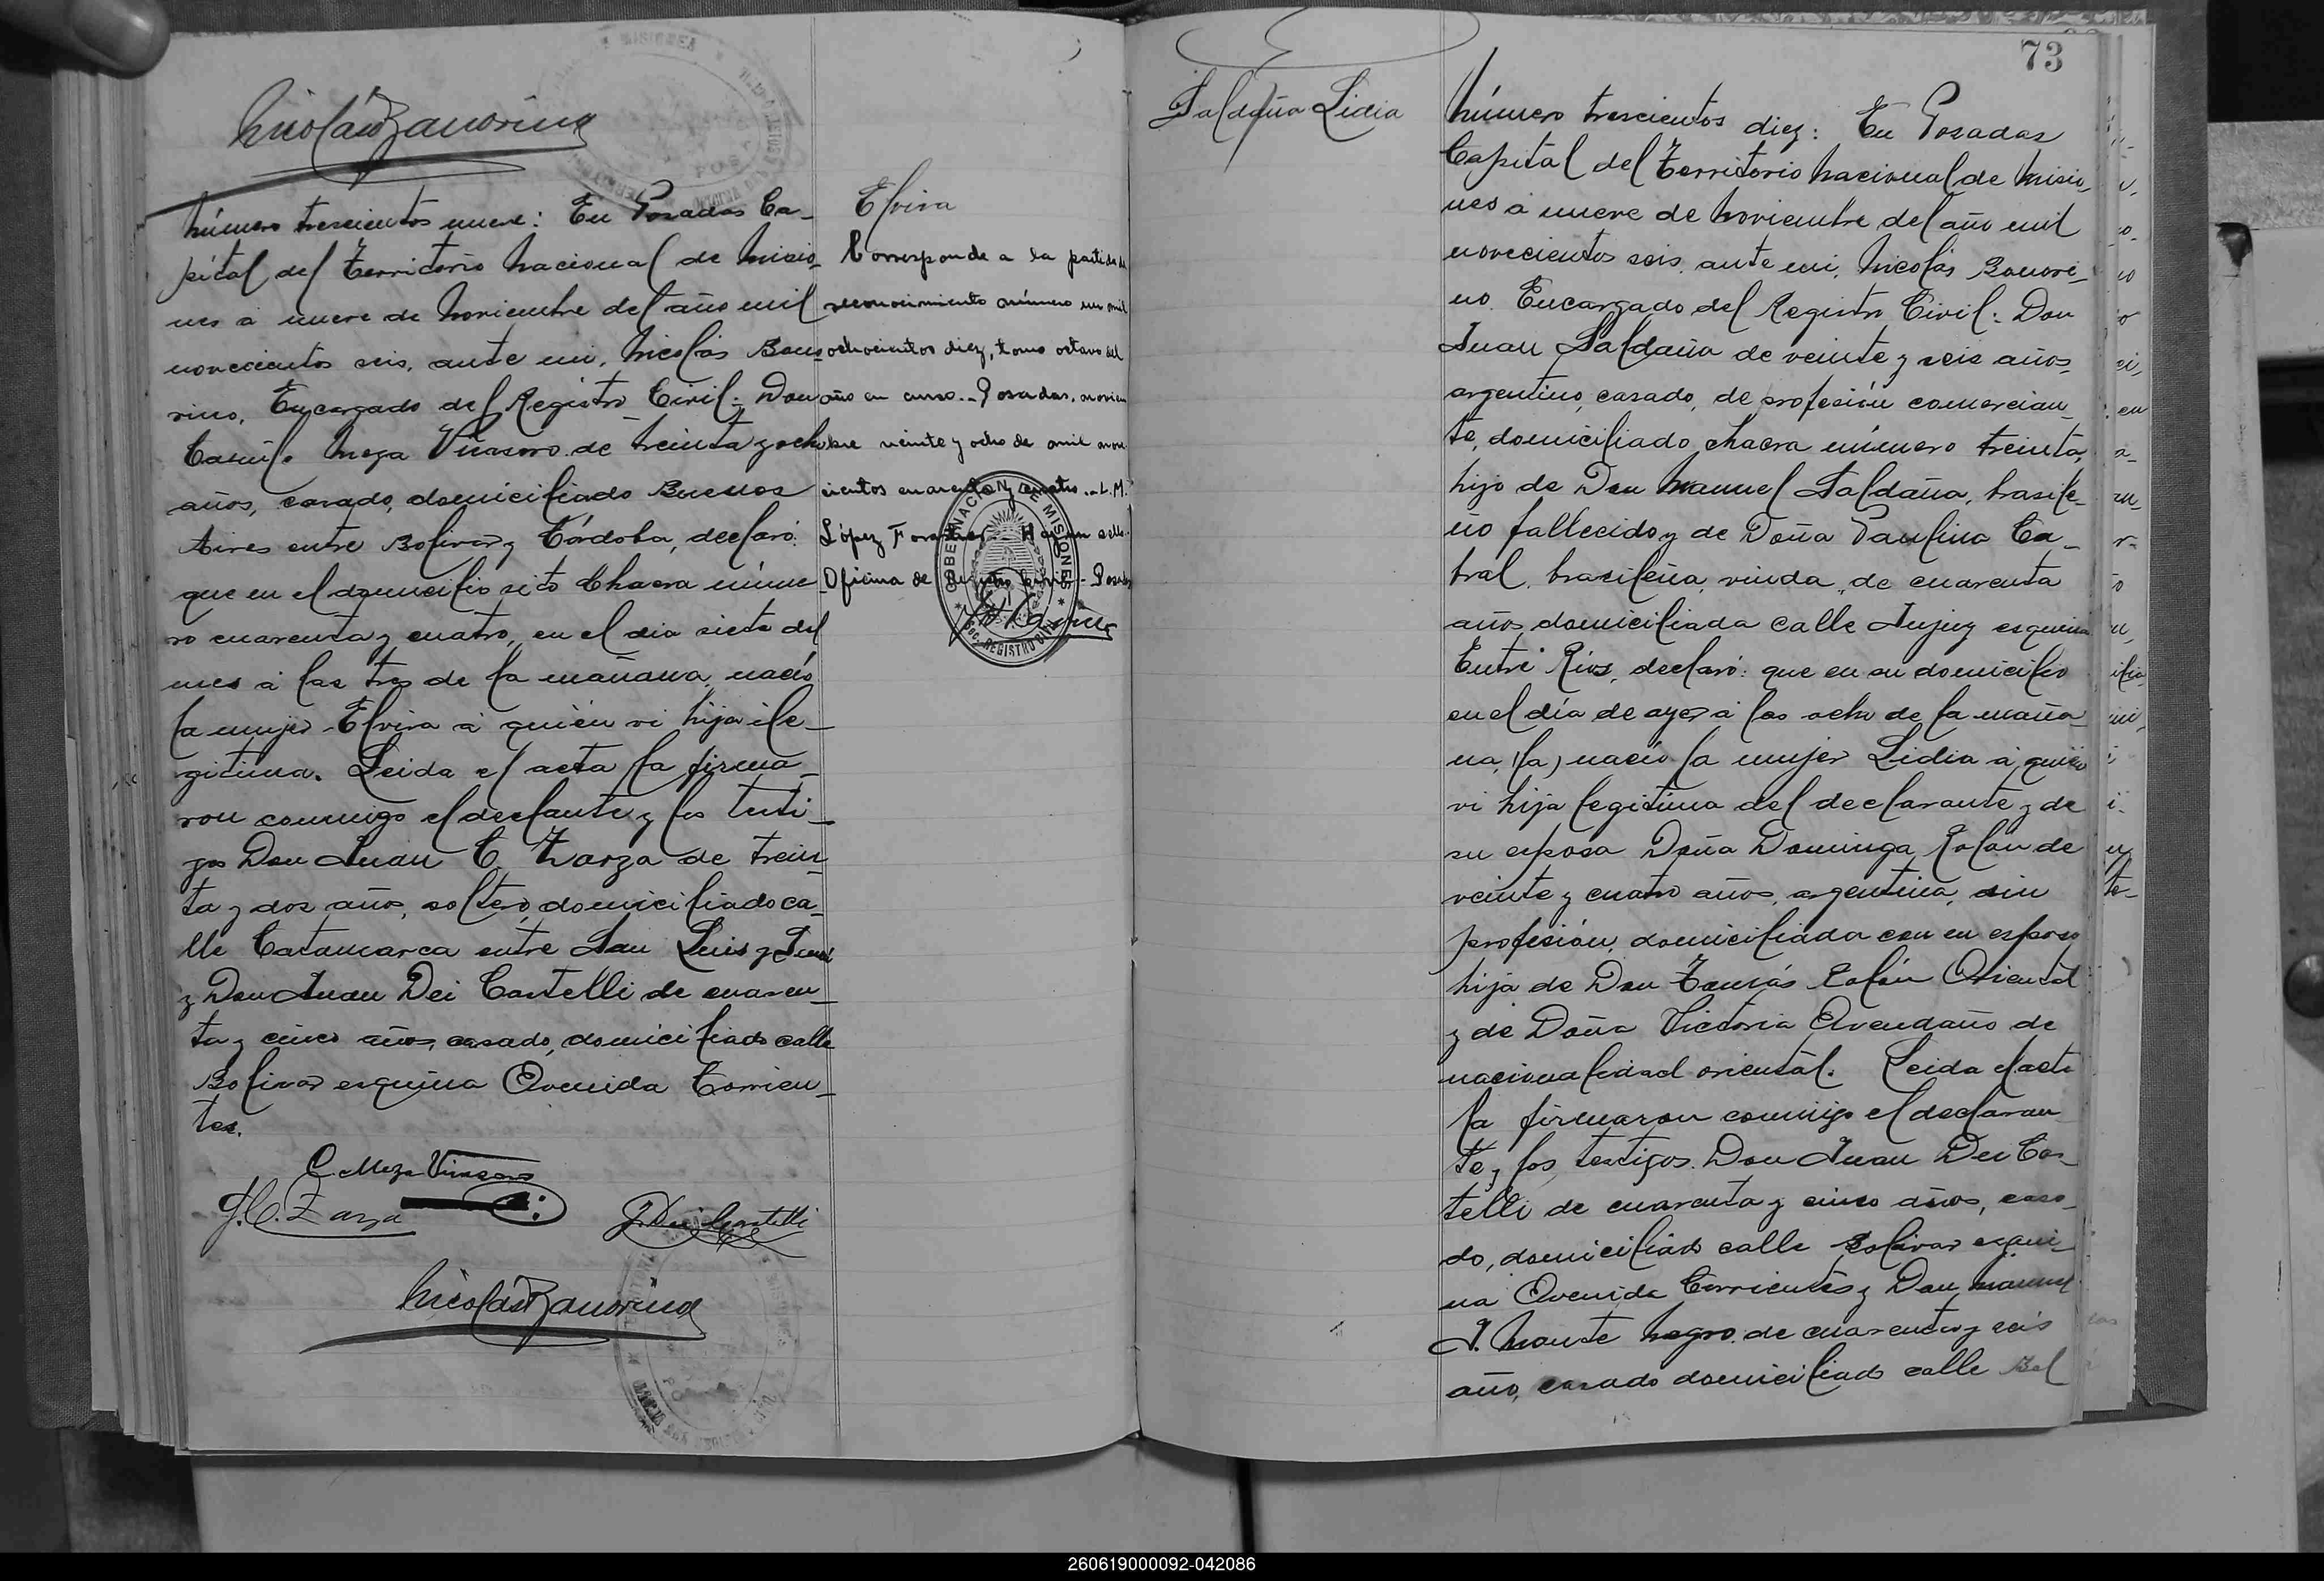 Nicolás Bonorino
Número trescientos nueve: En Posadas Ca-
pital del Territorio Nacional de Misio-
nes á nueve de Noviembre del año mil
novecientos seis, ante mi, Nicolás Bono-
rino, Encargado del Registro Civil: Don
Casiano Meza Virasoro de treinta y ocho
años, casado, domiciliado Buenos
Aires entre Bolivar y Córdoba, declaró:
que en el domicilio sito Chacra núme
ro cuarenta y cuatro, en el dia siete del
mes á las tres de la mañana, nació
la mujer Elvira á quién vi hija ile-
gitima. Leida el acta la firma-
ron conmigo el declante y los testi-
gos Don Juan C. Zarza de trein
ta y dos años, soltero, domiciliado ca-
lle Catamarca entre San Luis y
y Don Juan Dei Castelli de cuaren-
ta y cinco años, casado, domiciliado calle
Bolivar esquina Avenida Corrien-
tes.
C. Meza Virasoro
J. C. Zarza
J. Dei Castelli
Nicolás Bonorino
Elvira
Corresponde a la partida de
reconocimiento número un mil
ochocientos diez, tomo octavo del
año en curso.- Posadas, noviem
bre veinte y ocho de mil nove
cientos cuarenta y cuatro.- L.M.
López Forastier Hay un sello:
Oficina de Registro Civil - Posadas
GOBERNACION DE MISIONES
REGISTRO CIVIL
73
Saldaña Lidia
Número trescientos diez: En Posadas
Capital del Territorio Nacional de Misio-
nes á nueve de Noviembre del año mil
novecientos seis, ante mi, Nicolás Bonori-
no Encargado del Registro Civil: Don
Juan Saldaña de veinte y seis años,
argentino, casado, de profesión comercian-
te, domiciliado chacra número treinta,
hijo de Don Manuel Saldaña, brasile-
ño fallecido y de Doña Paulina Ca-
bral, brasileña, viuda, de cuarenta
años, domiciliada calle Jujuy esquina
Entre Rios, declaró: que en su domicilio
en el día de ayer á las ocho de la maña-
na, (la) nació la mujer Lidia á quién
vi hija legitima del declarante y de
su esposa Doña Dominga Rolón de
veinte y cuatro años, argentina, sin
profesión, domiciliada con su esposo
hija de Don Tomás Rolón Oriental
y de Doña Victoria Avendaño de
nacionalidad oriental. Leida el acta
la firmaron conmigo el declaran
te y los testigos Don Juan Dei Cas-
telli de cuarenta y cinco años, casa-
do, domiciliado calle Bolivar esqui-
na Avenida Corrientes y Don Manuel
J. Monte Negro de cuarenta y seis
año, casado domiciliado calle Bol
260619000092-042086